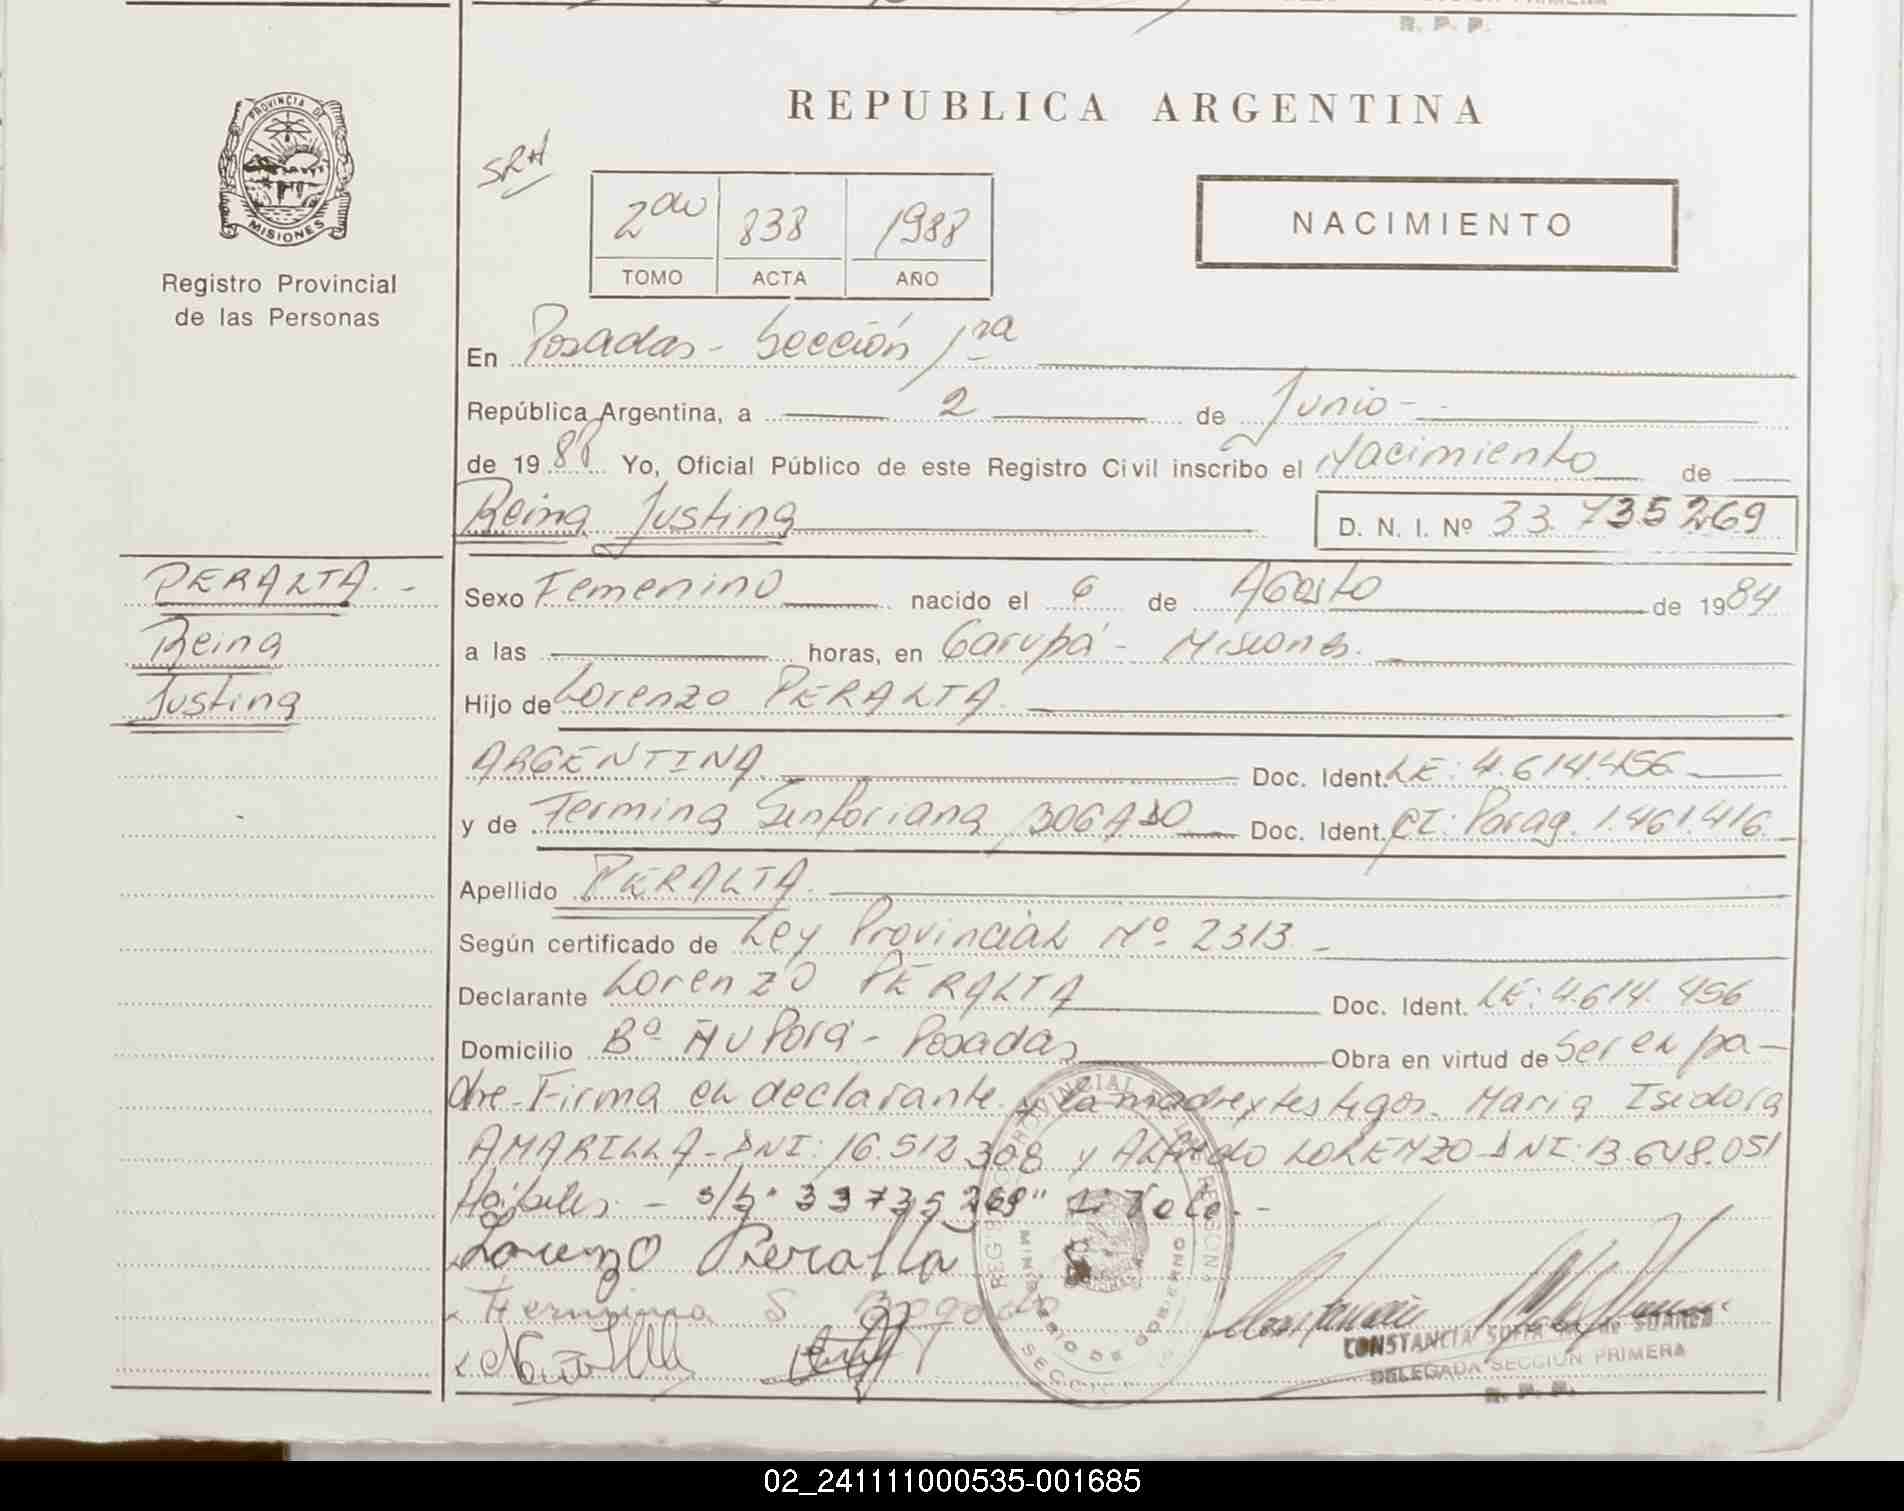 R. P. P.
REPUBLICA ARGENTINA
PROVINCIA DE
MISIONES
Registro Provincial
de las Personas
2do 838 1988
TOMO ACTA AÑO
NACIMIENTO
En Posadas - Sección 1ra
República Argentina, a 2 de Junio -
de 1988 Yo, Oficial Público de este Registro Civil inscribo el Nacimiento de
Reina Justina D. N. I. Nº 33.735269
PERALTA. -
Reina
Justina
Sexo Femenino nacido el 6 de Agosto de 1984
a las horas, en Garupá - Misiones.
Hijo de Lorenzo PERALTA.
ARGENTINA. Doc. Ident. LE: 4.614.456
y de Fermina Sinforiana BOGADO Doc. Ident. CI: Parag. 1.461.416.
Apellido PERALTA.
Según certificado de Ley Provincial Nº 2313. -
Declarante Lorenzo PERALTA Doc. Ident. LE: 4.614.456
Domicilio Bº Ñu Porá - Posadas Obra en virtud de Ser el pa-
dre - Firma el declarante y la madre y testigos. Maria Isidora
AMARILLA - DNI: 16.512.308 y Alfredo LORENZO - DNI: 13.648.051
Hábiles. - s/b. "33735269" Vale. -
Lorenzo Peralta
Fermina S Bogado
CONSTANCIA SOFIA de SUAREZ
DELEGADA SECCION PRIMERA
R. P. P.
02_241111000535-001685